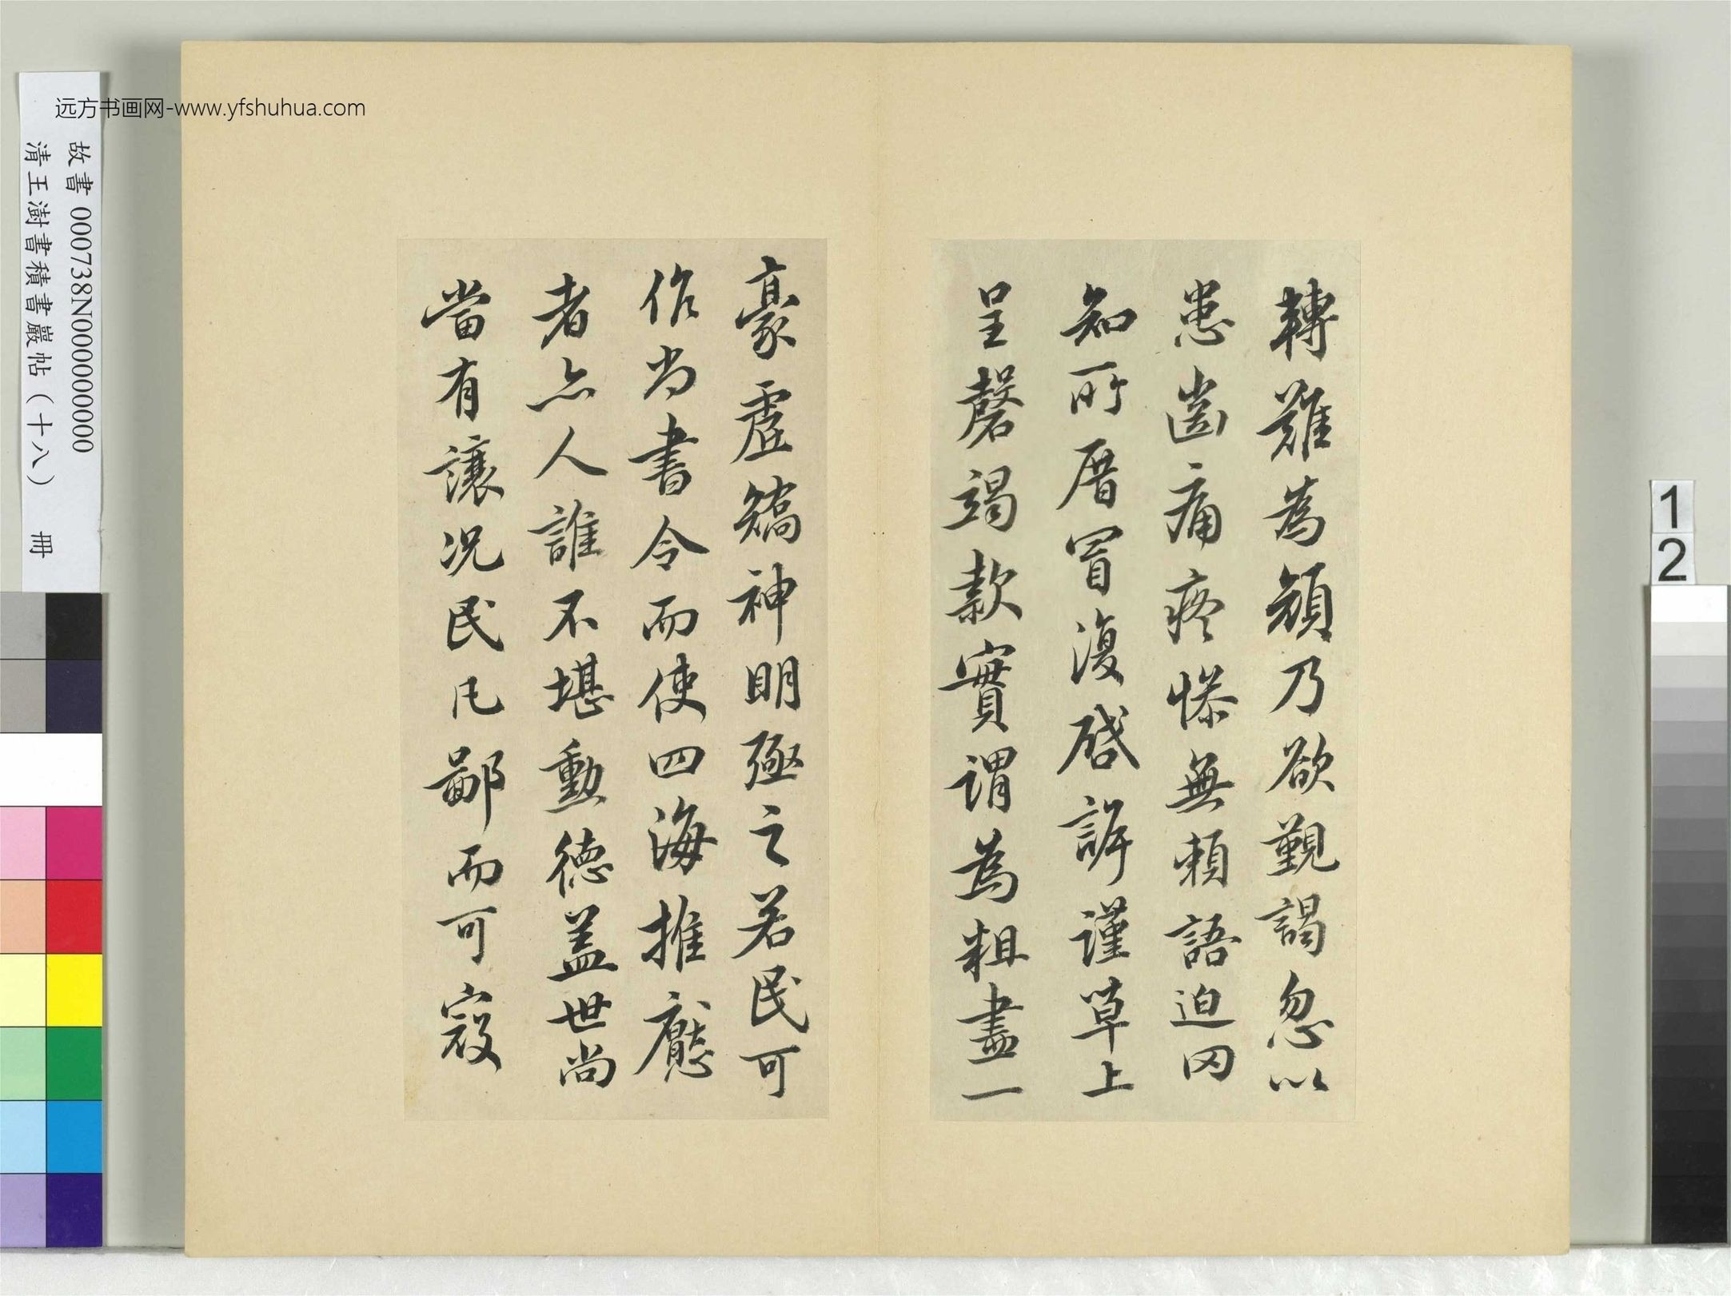 轉難為顏乃欲覲謁忽以
患齒痛疼慘無賴語迫罔
知所厝冒復啓訴謹草上
呈罄竭款實謂為粗盡一
豪虛矯神明殛之若民可
作尚書令而使四海推懕
者亦人誰不堪勳德蓋世尚
當有讓況民凡鄙而可寇
远方书画网-www.yfshuhua.com
故書 000738N000000000
清王澍書積書巖帖(十八) 冊
1
2